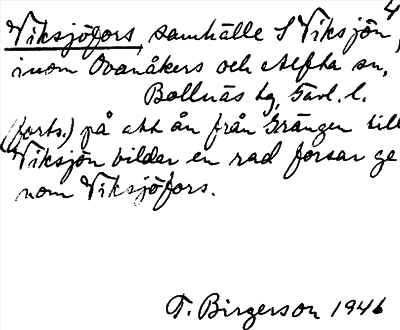 4
Viksjöfors, samhälle S Viksjön,
inom Ovanåkers och Alfta sn,
Bollnäs tg, Gävl. l.
(forts.) på att ån från Grängen till
Viksjön bildar en rad forsar ge
nom Viksjöfors.
T. Birgerson 1946